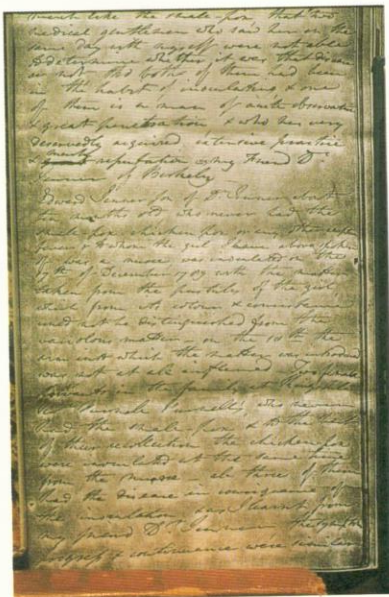 much like the small pox that two
medical gentlemen who saw her on the
same day with myself were not able
to determine whether it was that disease
or not tho both of them had been
in the habit of inoculating & one
of them is a man of acute observation
& great penetration & who has very
deservedly acquired extensive practice
& reputation my Friend Dr
Jenner of Berkeley
Edward Jenner son of Dr Jenner about
months old who never had the
small pox chicken pox or any
fever & to whom the girl I have above spoken
of was a nurse was inoculated on the
17th of December 1789 with the matter
taken from the pustule of the girl
which from its colour & consistence
could not be distinguished from the
variolous matter on the 10th the
arm into which the matter was introduced
was not at all inflamed
who never
had the small-pox & to the
of their recollection the chickenpox
were inoculated at the same time
from the nurse all three of them
had the disease in consequence of
the inoculation learnt from
my friend Dr Jenner that
myself & continuance were similar